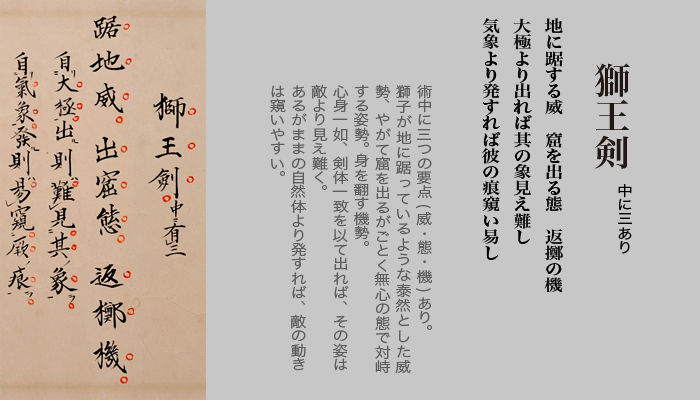 獅王剣 中に三あり
地に踞する威　窟を出る態　返擲の機
大極より出れば其の象見え難し
気象より発すれば彼の痕窺い易し
術中に三つの要点(威・態・機)あり。
獅子が地に踞っているような泰然とした威
勢、やがて窟を出るがごとく無心の態で対峙
する姿勢。身を翻す機勢。
心身一如、剣体一致を以て出れば、その姿は
敵より見え難く。
あるがままの自然体より発すれば、敵の動き
は窺いやすい。
獅王剣 中有三
踞地威　出窟態　返擲機
自大極出則難見其象
自氣象發則易窺厥痕